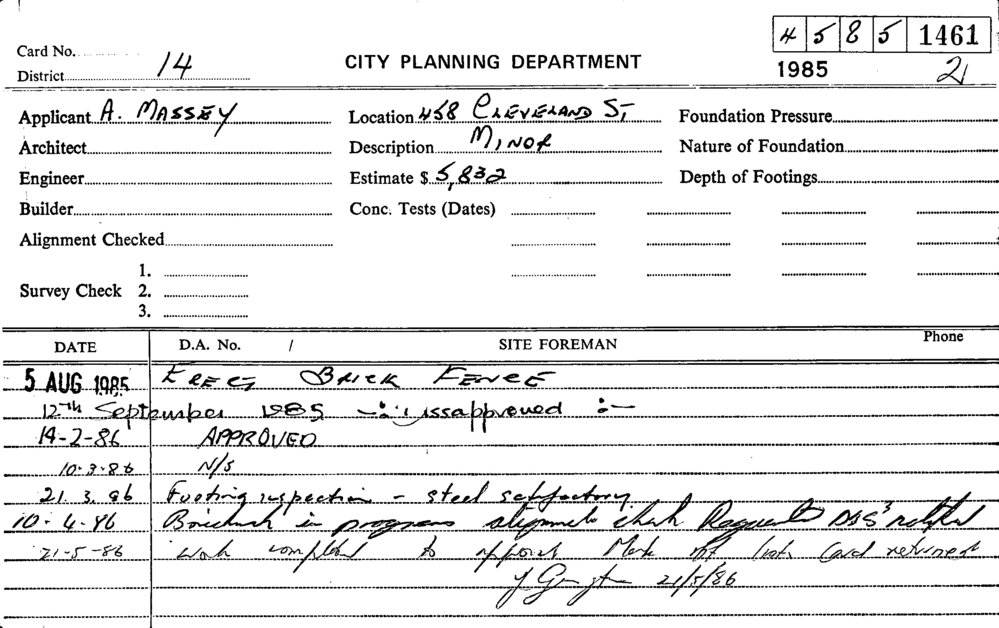 4 5 8 5 1461
Card No.
District 14 CITY PLANNING DEPARTMENT 1985 21
Applicant A. MASSEY Location 458 CLEVELAND ST, Foundation Pressure
Architect Description MINOR Nature of Foundation
Engineer Estimate $ 5,832 Depth of Footings
Builder Conc. Tests (Dates)
Alignment Checked
1.
Survey Check 2.
3.
DATE D.A. No. / SITE FOREMAN Phone
5 AUG 1985 ERECT BRICK FENCE
12TH September 1985 -:Dissapproved:-
14-2-86 APPROVED
10.3.86 N/S
21.3.86 Footing inspection - steel satisfactory
10.4.86 Brickwork in progress alignment check Requested notified
21-5-86 Work completed to approval Card returned
21/5/86